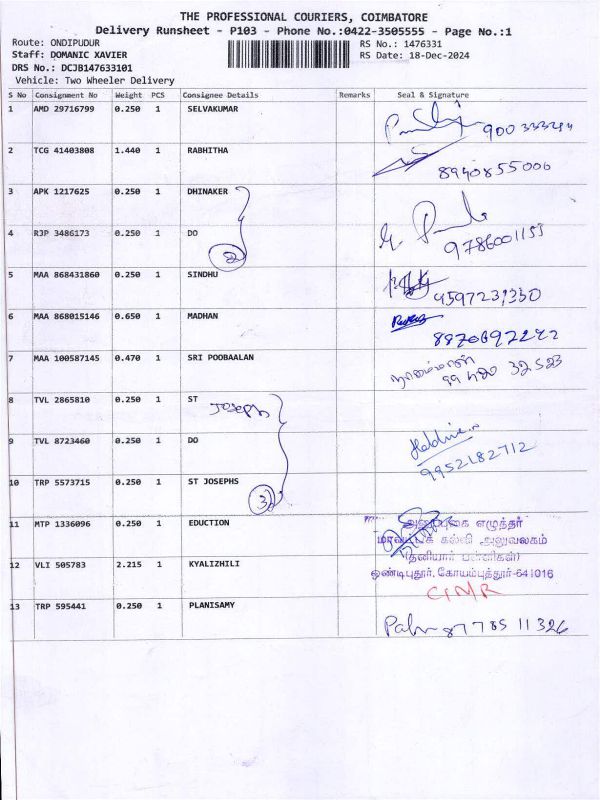 THE PROFESSIONAL COURIERS, COIMBATORE
Delivery Runsheet - P103 - Phone No.:0422-3505555 - Page No.:1
Route: ONDIPUDUR RS No.: 1476331
Staff: DOMANIC XAVIER RS Date: 18-Dec-2024
DRS No.: DCJB147633101
Vehicle: Two Wheeler Delivery
S No Consignment No Weight PCS Consignee Details Remarks Seal & Signature
1 AMD 29716799 0.250 1 SELVAKUMAR
2 TCG 41403808 1.440 1 RABHITHA
8940855006
3 APK 1217625 0.250 1 DHINAKER
4 RJP 3486173 0.250 1 DO
2
9786001155
5 MAA 868431860 0.250 1 SINDHU
6 MAA 868015146 0.650 1 MADHAN
7 MAA 100587145 0.470 1 SRI POOBAALAN
8 TVL 2865810 0.250 1 ST
Joseph
9 TVL 8723460 0.250 1 DO
9952182712
10 TRP 5573715 0.250 1 ST JOSEPHS
3
11 MTP 1336096 0.250 1 EDUCTION
எழுத்தர்
கல்வி அலுவலகம்
(தனியார் பள்ளிகள்)
12 VLI 505783 2.215 1 KYALIZHILI
ஒண்டிபுதூர், கோயம்புத்தூர்-641016
13 TRP 595441 0.250 1 PLANISAMY
8778511326